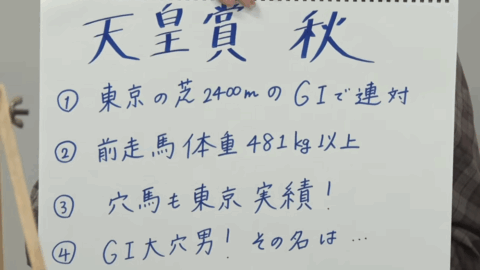 天皇賞 秋
① 東京の芝2400mのGIで連対
② 前走馬体重481kg以上
③ 穴馬も東京実績!
④ GI大穴男! その名は…